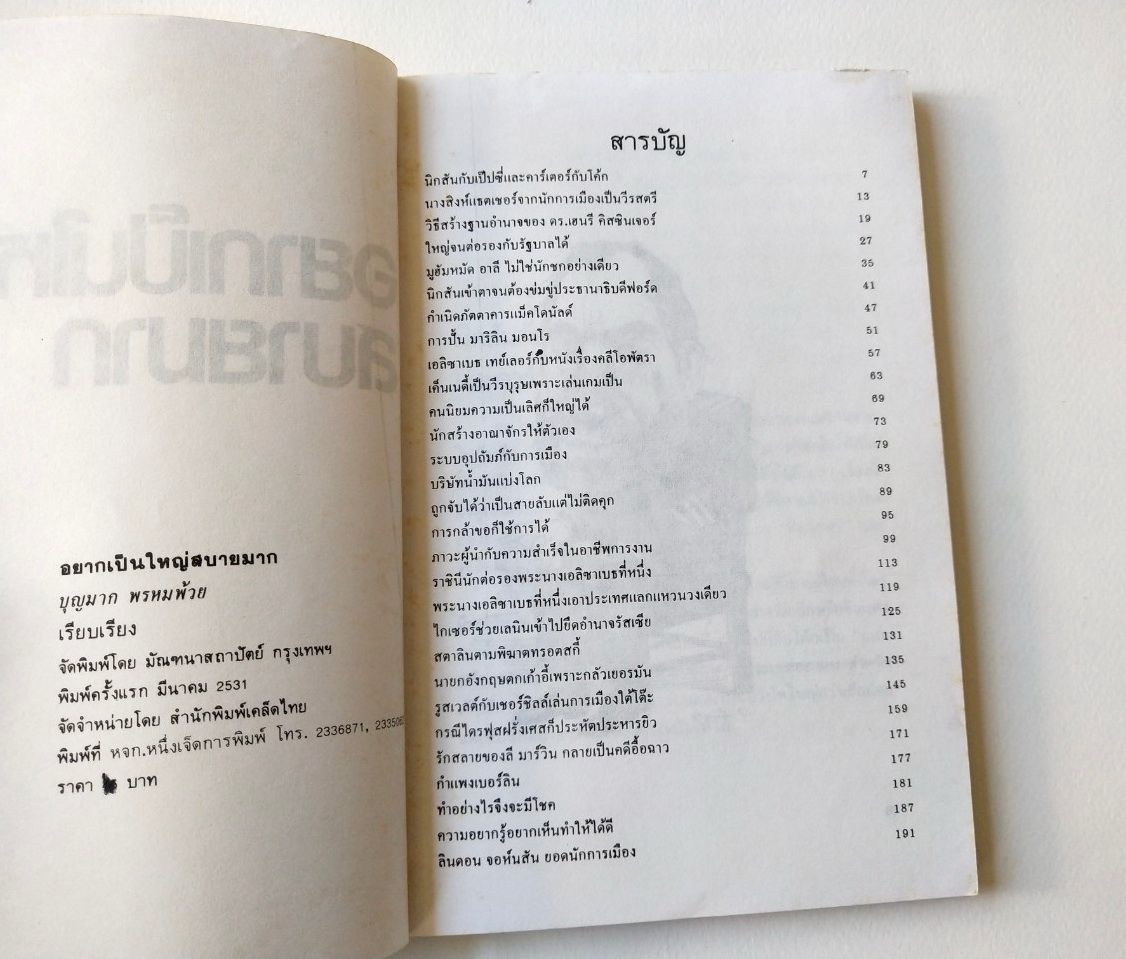 อยากเป็นใหญ่สบายมาก
บุญมาก พรหมพ้วย
เรียบเรียง
จัดพิมพ์โดย มัณฑนาสถาปัตย์ กรุงเทพฯ
พิมพ์ครั้งแรก มีนาคม 2531
จัดจำหน่ายโดย สำนักพิมพ์เคล็ดไทย
พิมพ์ที่ หจก.หนึ่งเจ็ดการพิมพ์ โทร. 2336871,
ราคา บาท
สารบัญ
นิกสันกับเป๊ปซี่และคาร์เตอร์กับโค้ก 7
นางสิงห์แธตเชอร์จากนักการเมืองเป็นวีรสตรี 13
วิธีสร้างฐานอำนาจของ ดร.เฮนรี คิสซินเจอร์ 19
ใหญ่จนต่อรองกับรัฐบาลได้ 27
มูฮัมหมัด อาลี ไม่ใช่นักชกอย่างเดียว 35
นิกสันเข้าตาจนต้องข่มขู่ประธานาธิบดีฟอร์ด 41
กำเนิดภัตตาคารแม็คโดนัลด์ 47
การปั้น มาริลิน มอนโร 51
เอลิซาเบธ เทย์เลอร์กับหนังเรื่องคลีโอพัตรา 57
เค็นเนดี้เป็นวีรบุรุษเพราะเล่นเกมเป็น 63
คนนิยมความเป็นเลิศก็ใหญ่ได้ 69
นักสร้างอาณาจักรให้ตัวเอง 73
ระบบอุปถัมภ์กับการเมือง 79
บริษัทน้ำมันแบ่งโลก 83
ถูกจับได้ว่าเป็นสายลับแต่ไม่ติดคุก 89
การกล้าขอก็ใช้การได้ 95
ภาวะผู้นำกับความสำเร็จในอาชีพการงาน 99
ราชินีนักต่อรองพระนางเอลิซาเบธที่หนึ่ง 113
พระนางเอลิซาเบธที่หนึ่งเอาประเทศแลกแหวนวงเดียว 119
ไกเซอร์ช่วยเลนินเข้าไปยึดอำนาจรัสเซีย 125
สตาลินตามพิฆาตทรอตสกี้ 131
นายกอังกฤษตกเก้าอี้เพราะกลัวเยอรมัน 135
รูสเวลต์กับเชอร์ชิลล์เล่นการเมืองใต้โต๊ะ 145
กรณีไดรฟุสฝรั่งเศสก็ประหัตประหารยิว 159
รักสลายของลี มาร์วิน กลายเป็นคดีอื้อฉาว 171
กำแพงเบอร์ลิน 177
ทำอย่างไรจึงจะมีโชค 181
ความอยากรู้อยากเห็นทำให้ได้ดี 187
ลินดอน จอห์นสัน ยอดนักการเมือง 191